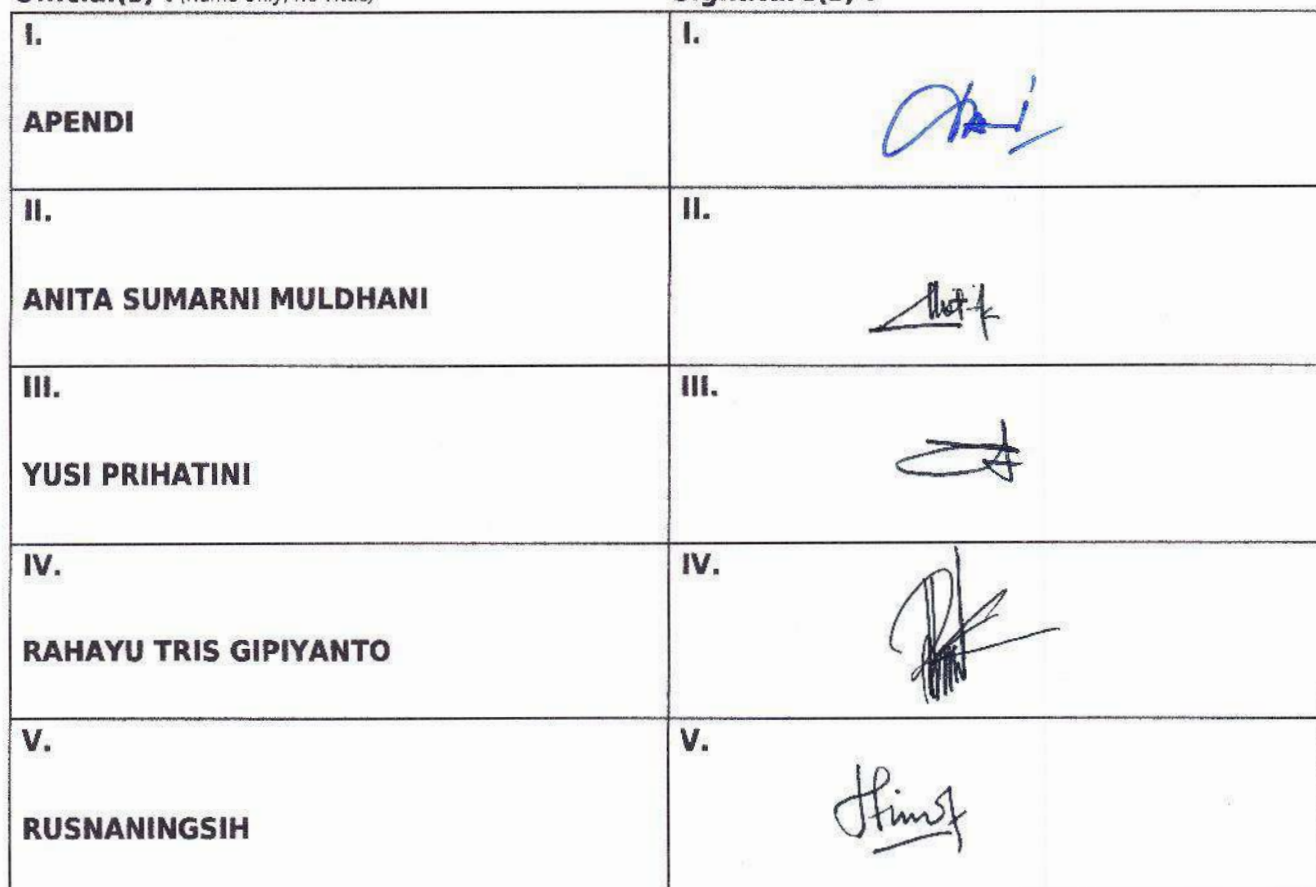 I.
I.
APENDI
II.
II.
ANITA SUMARNI MULDHANI
III.
III.
YUSI PRIHATINI
IV.
IV.
RAHAYU TRIS GIPIYANTO
V.
V.
RUSNANINGSIH